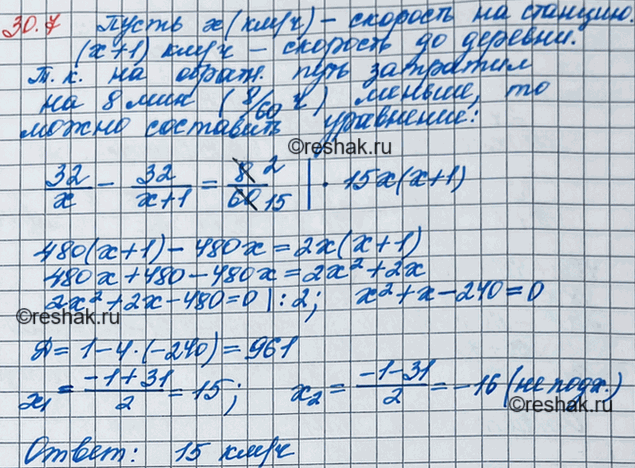 30.7 Пусть x (км/ч) – скорость на станцию.
(x+1) км/ч – скорость до деревни.
Т.к. на обратн. путь затратил
на 8 мин (8/60 ч) меньше, то
можно составить уравнение:
©reshak.ru
32/x - 32/(x+1) = 8/60 2/15 | · 15x(x+1)
480(x+1) - 480x = 2x(x+1)
480x + 480 - 480x = 2x² + 2x
2x² + 2x - 480 = 0 |:2; x² + x - 240 = 0
©reshak.ru
Д = 1 - 4·(-240) = 961
x₁ = (-1+31)/2 = 15; x₂ = (-1-31)/2 = -16 (не подх.)
©reshak.ru
Ответ: 15 км/ч